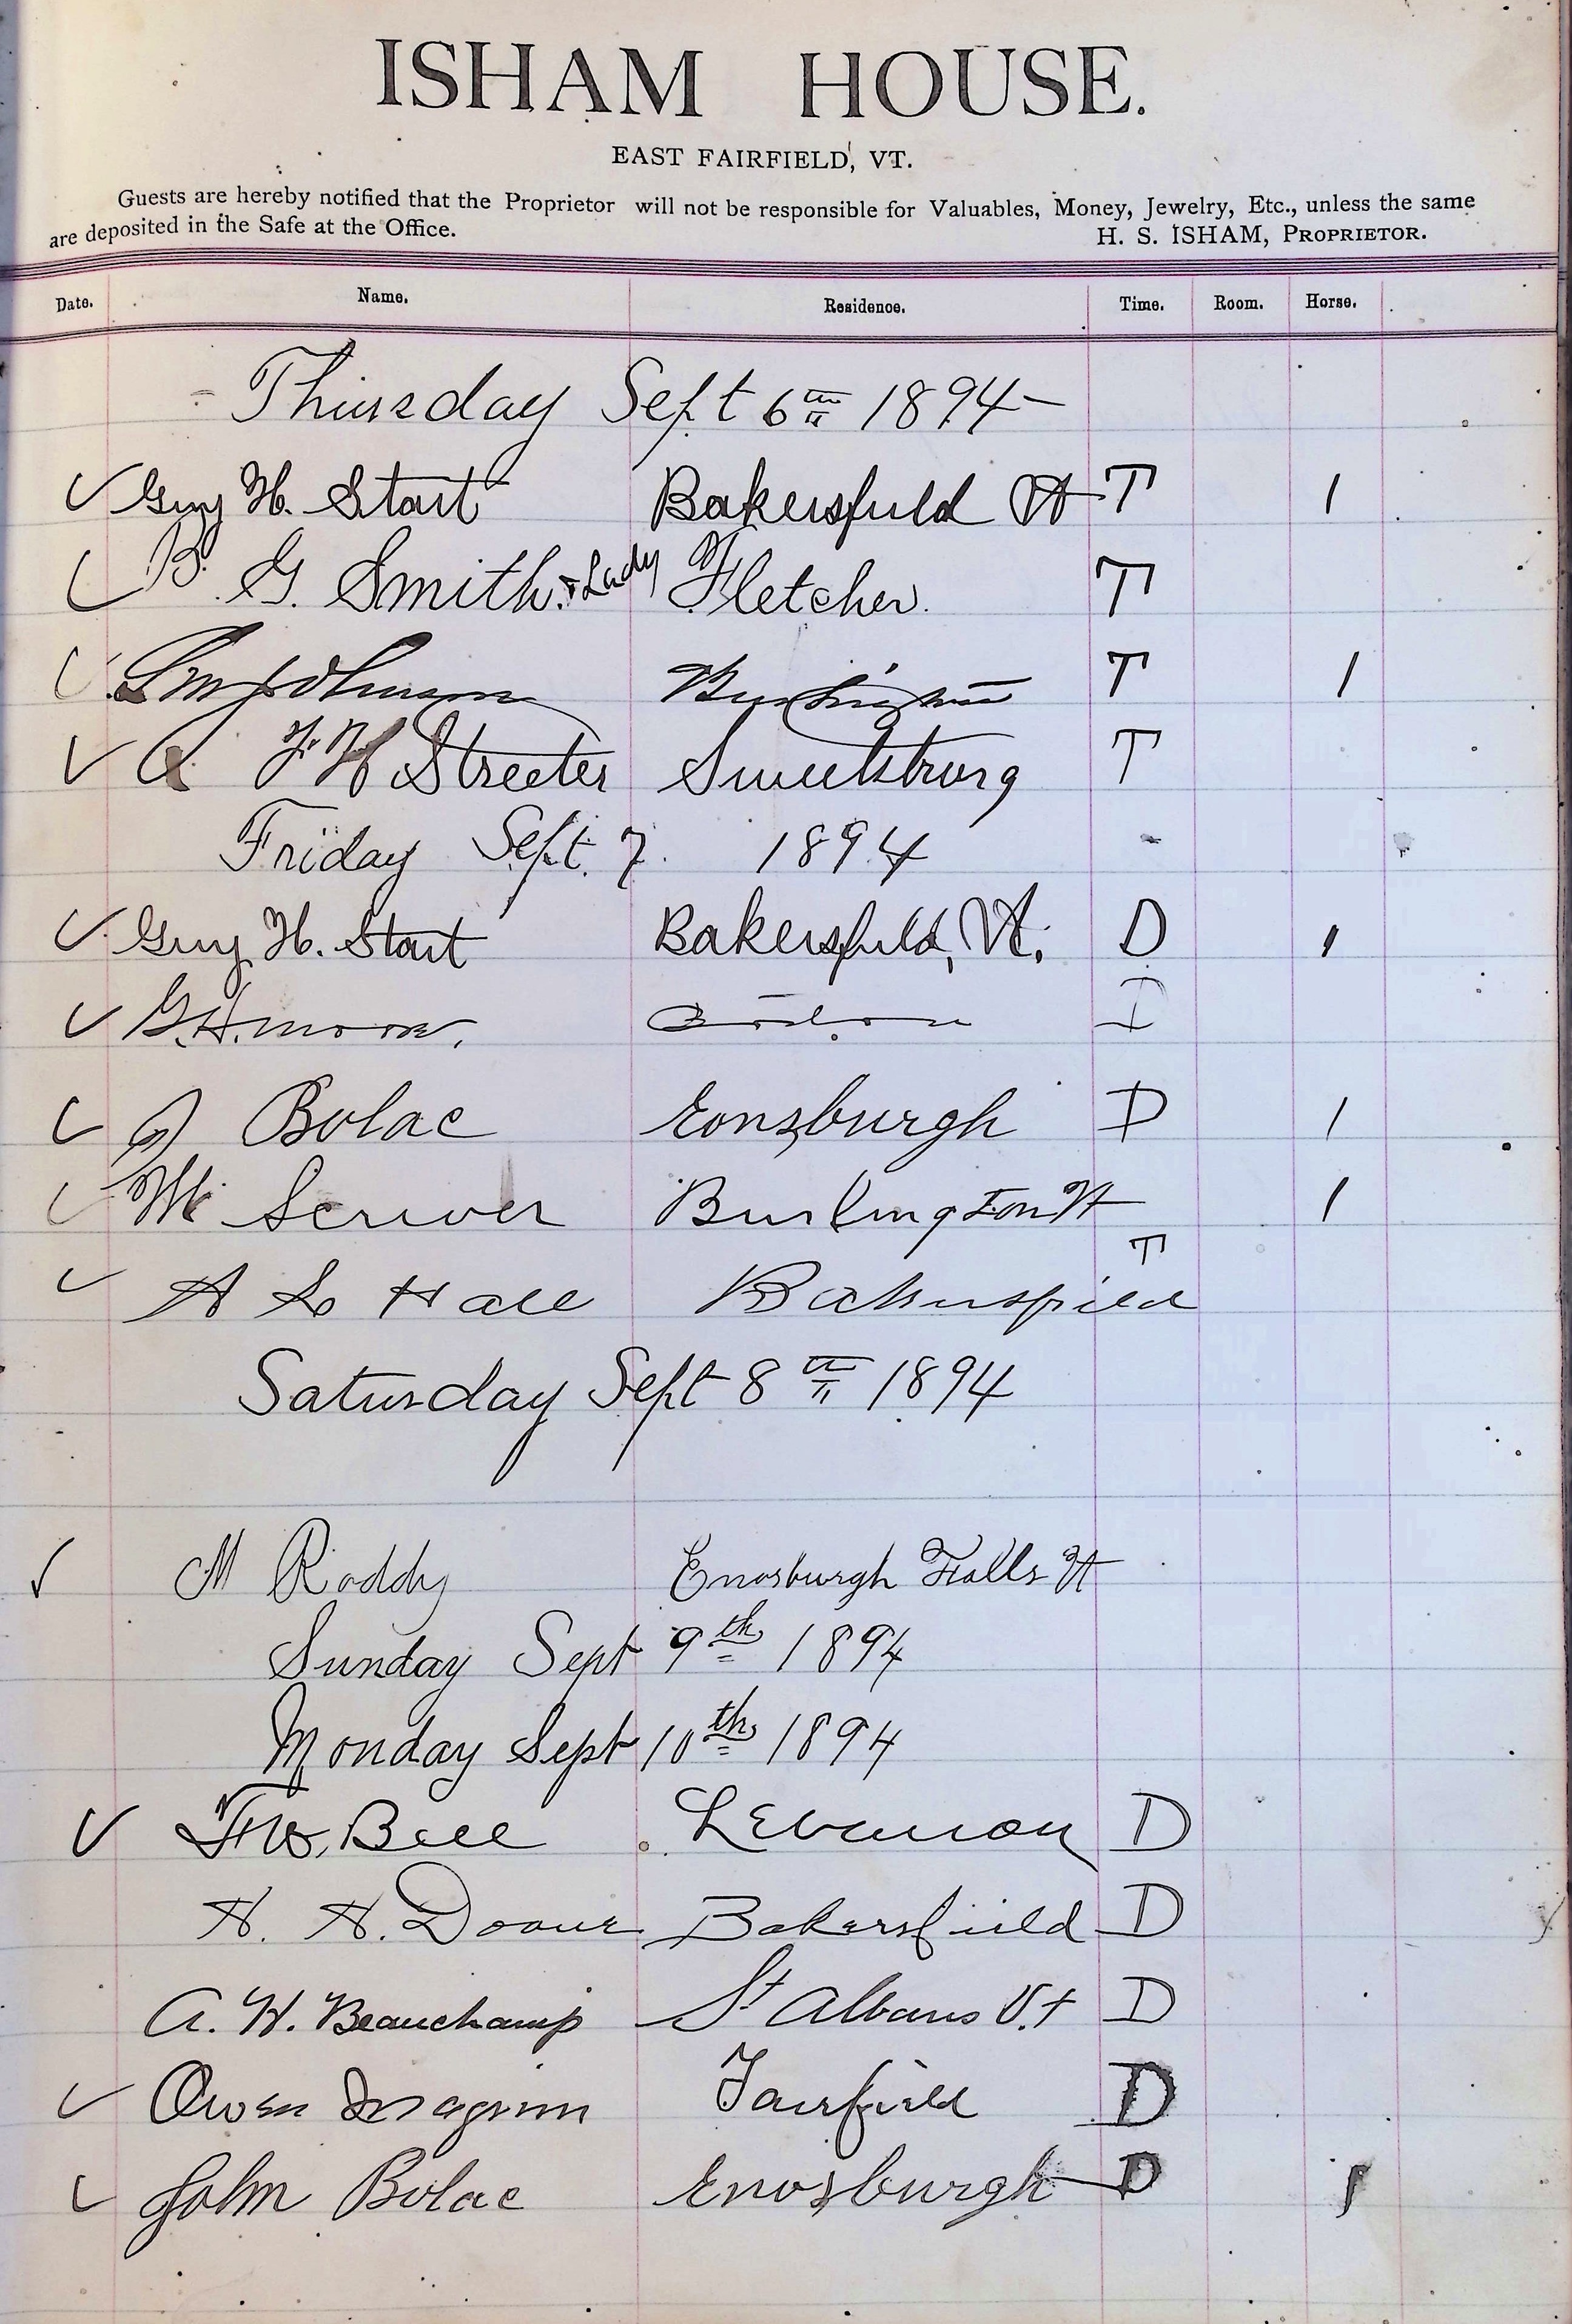 ISHAM HOUSE.
EAST FAIRFIELD, VT.
Guests are hereby notified that the Proprietor will not be responsible for Valuables, Money, Jewelry, Etc., unless the same
are deposited in the Safe at the Office. H. S. ISHAM, PROPRIETOR.
Date. Name. Residence. Time. Room. Horse.
Thursday Sept 6th 1894
✓ Guy H. Start Bakersfield Vt T 1
✓ B. G. Smith. & Lady Fletcher. T
✓ Johnson Burlington T 1
✓ F. H Streeter Sweetsburg T
Friday Sept. 7. 1894
✓ Guy H. Start Bakersfield, Vt. D 1
✓ G. H. Moore. D
✓ J Bolac Eonsburgh D 1
✓ Scriver Burlington Vt 1
T
✓ A S Hall Bakersfield
Saturday Sept 8th 1894
✓ M Roddy Enosburgh Falls Vt
Sunday Sept 9th 1894
Monday Sept 10th 1894
✓ Bell Lebanon D
H. H. Doane Bakersfield D
A. H. Beauchamp St Albans V.t D
✓ Owen Maginn Fairfield D
✓ John Bolac Enosburgh D 1